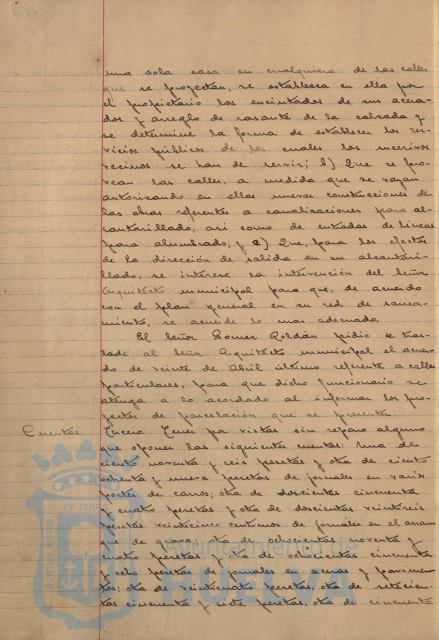 una sola casa en cualquiera de las calles
que se proyectan, se establezca en ella por
el propietario los encintados de sus acera-
dos y arreglo de rasante de la calzada y
se determine la forma de establecer los ser-
vicios públicos de los cuales los nuevos
vecinos se han de servir; b) Que se pro-
vean las calles, a medida que se vayan
autorizando en ellas nuevas construcciones de
las obras referentes a canalizaciones para al-
cantarillado, así como de entradas de líneas
para alumbrado; y c) Que, para los efectos
de la dirección de salida en su alcantari-
llado, se interese la intervención del Señor
Arquitecto municipal para que, de acuerdo
con el plan general en su red de sanea-
miento, se acuerde lo mas adecuado.
El Señor Gomez Roldán pidió se tras-
lade al Señor Arquitecto municipal el acuer-
do de veinte de Abril último referente a calles
particulares, para que dicho funcionario se
atenga a lo acordado al informar los pro-
yectos de parcelación que se presenten.
Cuentas.
Tener por vistas sin reparo alguno
que oponer las siguientes cuentas: Una de
ciento noventa y seis pesetas y otra de ciento
ochenta y nueve pesetas de jornales en varios
portes de carros; otra de doscientas cincuenta
y cuatro pesetas y otra de doscientas veintitres
pesetas veinticinco centimos de jornales en el arran-
que de grava; otra de ochocientas noventa y
cuatro pesetas y otra de ochocientas cincuenta
y ocho pesetas de jornales en aceras y pavimen-
tos; otra de veinticuatro pesetas, otra de setecien-
tas cincuenta y siete pesetas, otra de cincuenta
Ayuntamiento de
HUELVA